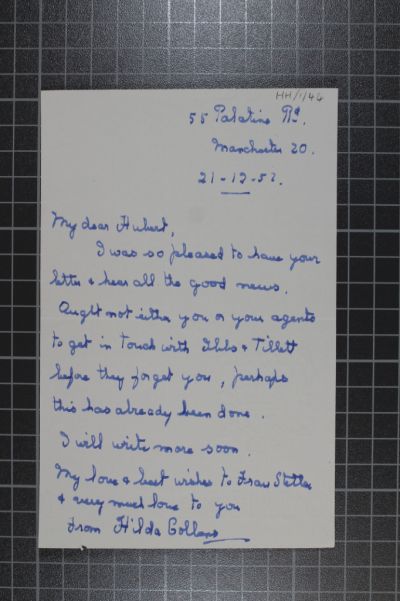 HH/1/46
55 Palatine Rd.
Manchester 20.
21-12-52.
My dear Hubert,
I was so pleased to have your
letter & hear all the good news.
Ought not either you or your agents
to get in touch with Ibbs & Tillett
before they forget you, perhaps
this has already been done.
I will write more soon.
My love & best wishes to Frau Stella
& very much love to you
From Hilda Collens